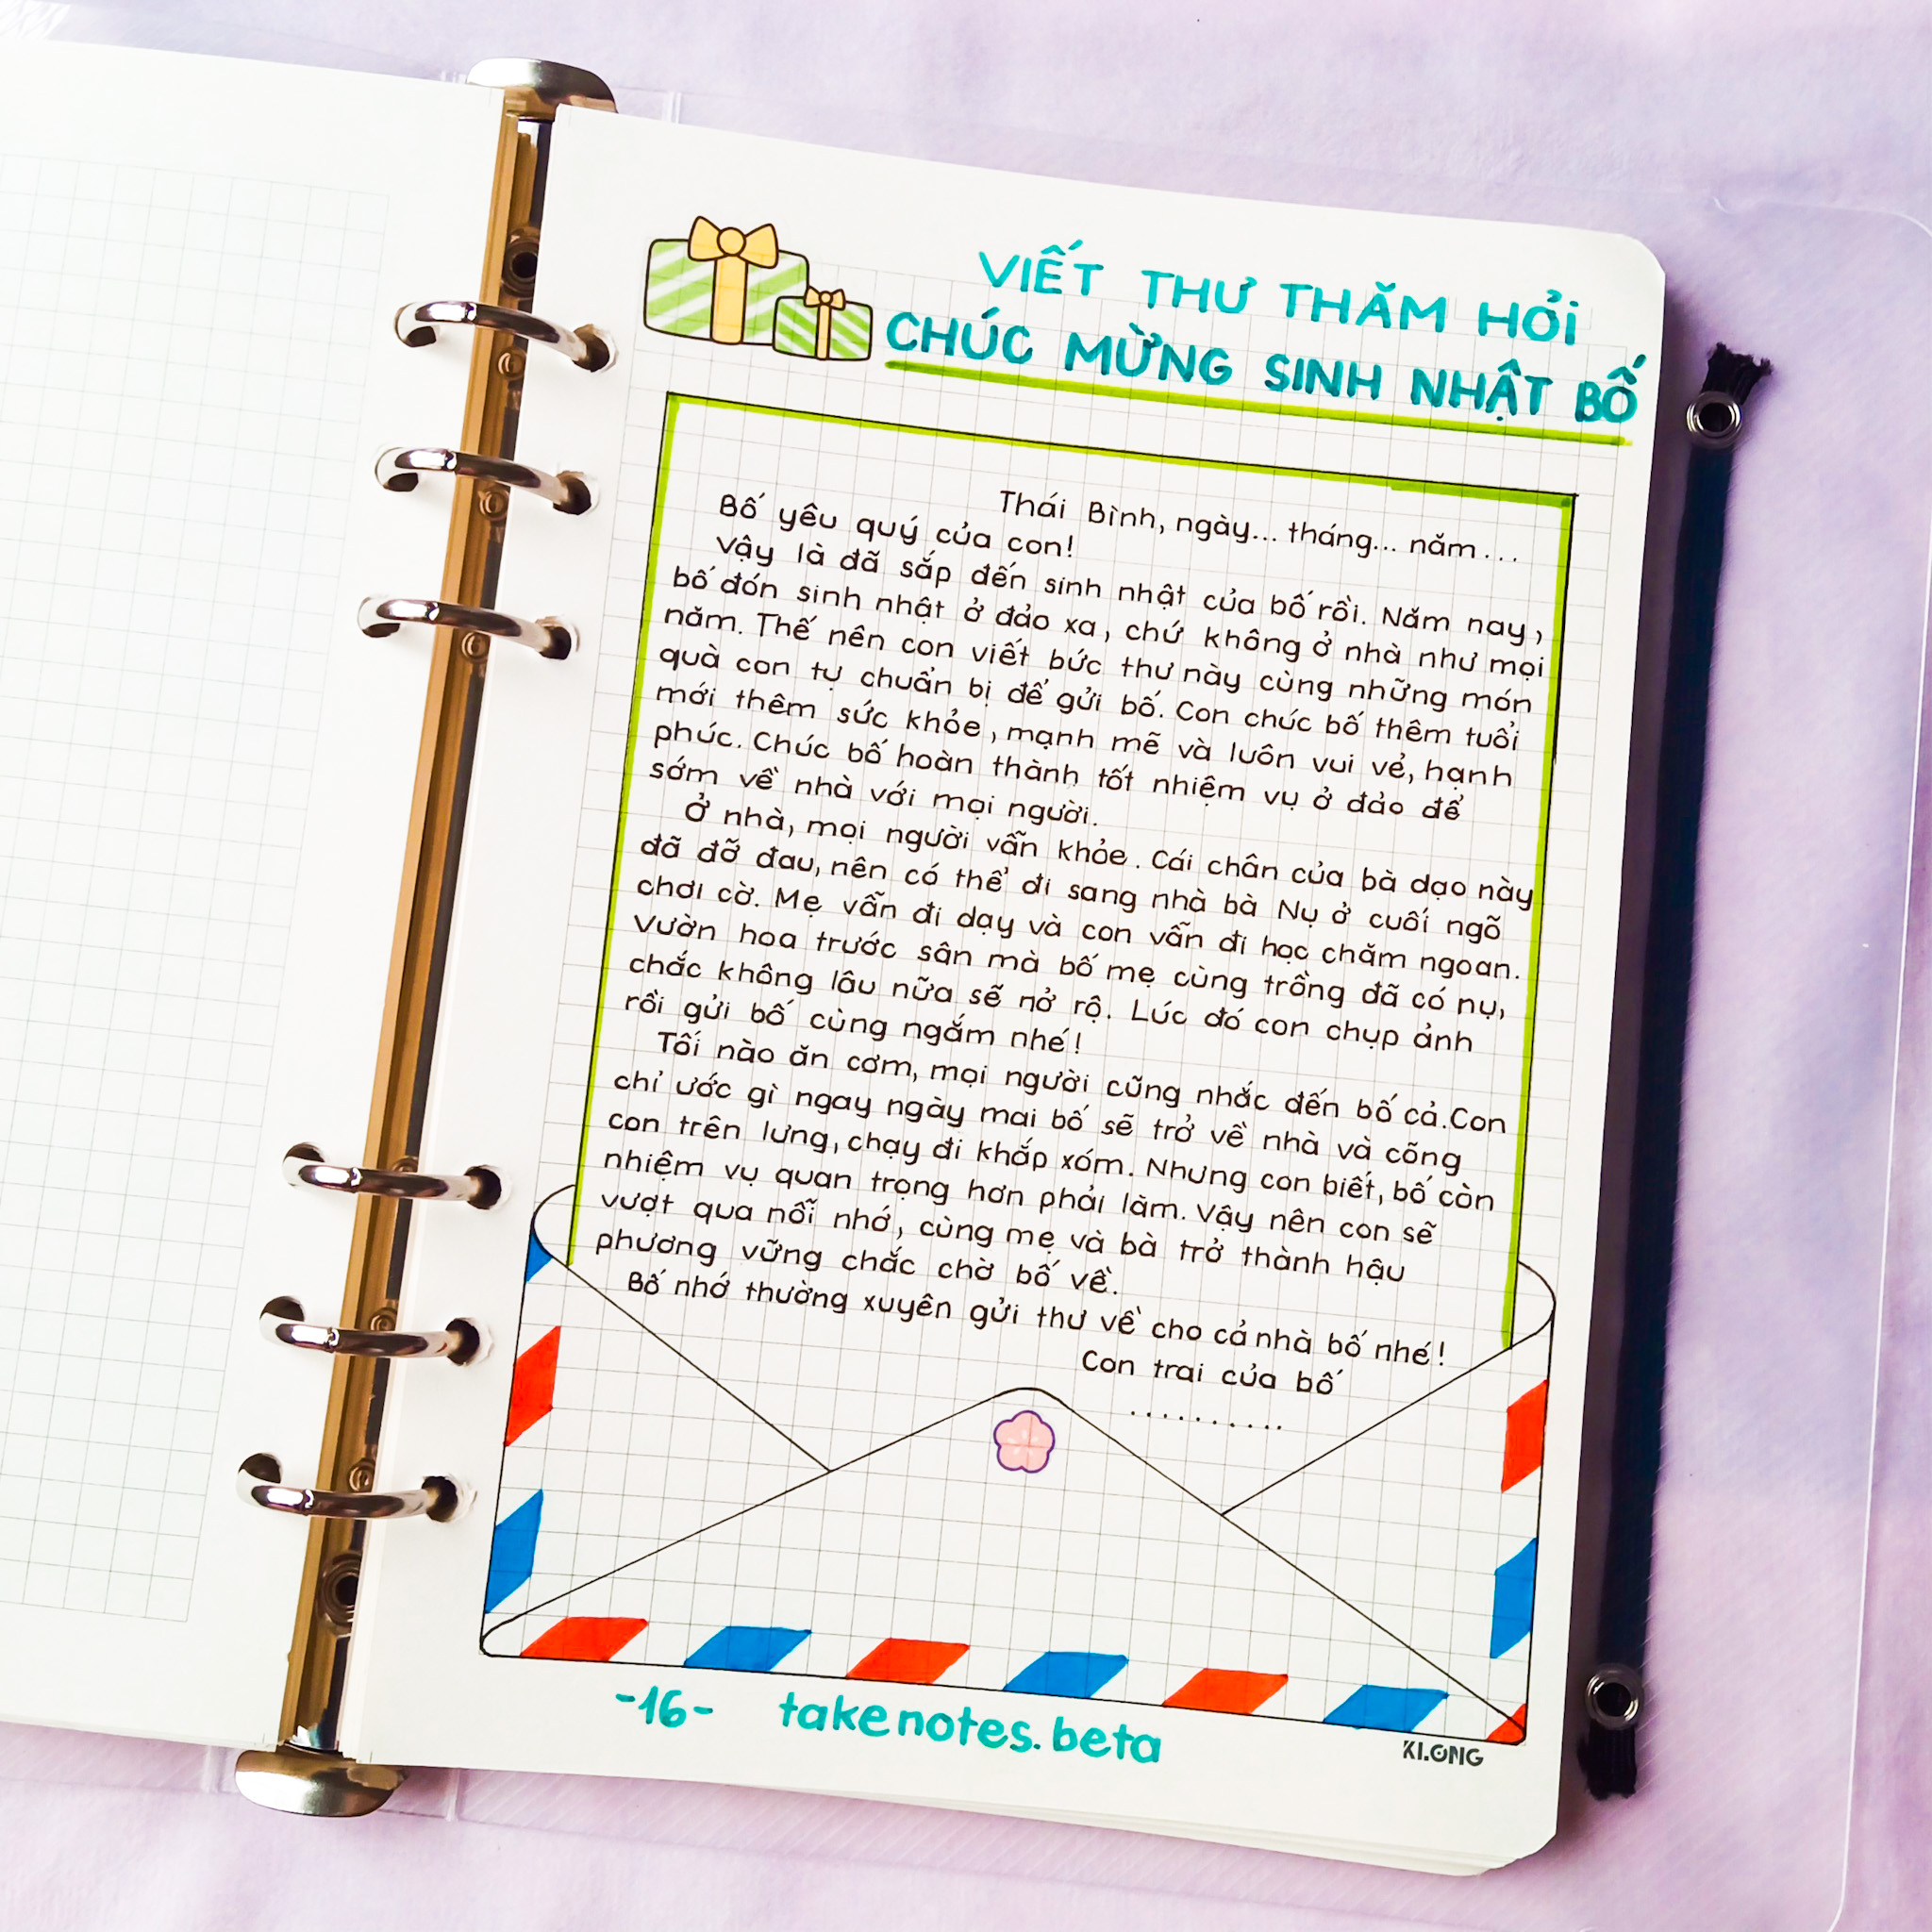 VIẾT THƯ THĂM HỎI
CHÚC MỪNG SINH NHẬT BỐ
Thái Bình, ngày... tháng... năm...
Bố yêu quý của con!
Vậy là đã sắp đến sinh nhật của bố rồi. Năm nay,
bố đón sinh nhật ở đảo xa, chứ không ở nhà như mọi
năm. Thế nên con viết bức thư này cùng những món
quà con tự chuẩn bị để gửi bố. Con chúc bố thêm tuổi
mới thêm sức khỏe, mạnh mẽ và luôn vui vẻ, hạnh
phúc. Chúc bố hoàn thành tốt nhiệm vụ ở đảo để
sớm về nhà với mọi người.
Ở nhà, mọi người vẫn khỏe. Cái chân của bà dạo này
đã đỡ đau, nên có thể đi sang nhà bà Nụ ở cuối ngõ
chơi cờ. Mẹ vẫn đi dạy và con vẫn đi học chăm ngoan.
Vườn hoa trước sân mà bố mẹ cùng trồng đã có nụ,
chắc không lâu nữa sẽ nở rộ. Lúc đó con chụp ảnh
rồi gửi bố cùng ngắm nhé!
Tối nào ăn cơm, mọi người cũng nhắc đến bố cả. Con
chỉ ước gì ngay ngày mai bố sẽ trở về nhà và cõng
con trên lưng, chạy đi khắp xóm. Nhưng con biết, bố còn
nhiệm vụ quan trọng hơn phải làm. Vậy nên con sẽ
vượt qua nỗi nhớ, cùng mẹ và bà trở thành hậu
phương vững chắc chờ bố về.
Bố nhớ thường xuyên gửi thư về cho cả nhà bố nhé!
Con trai của bố
..........
-16- takenotes.beta
KLONG